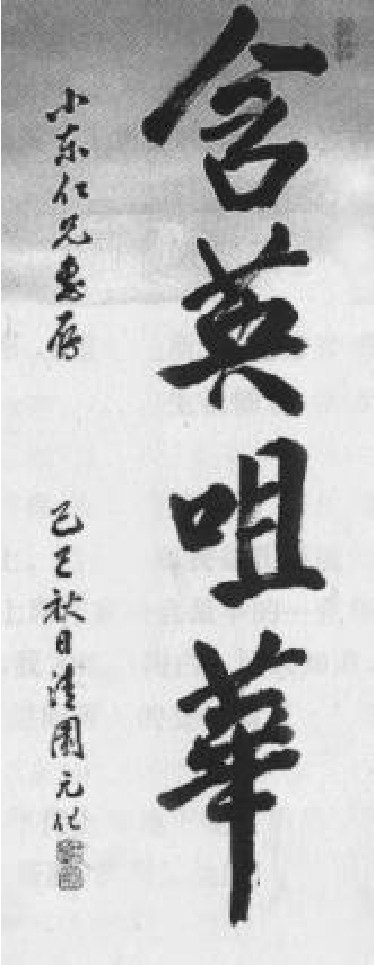 含英咀華
小东仁兄惠存
己巳秋日清園元化